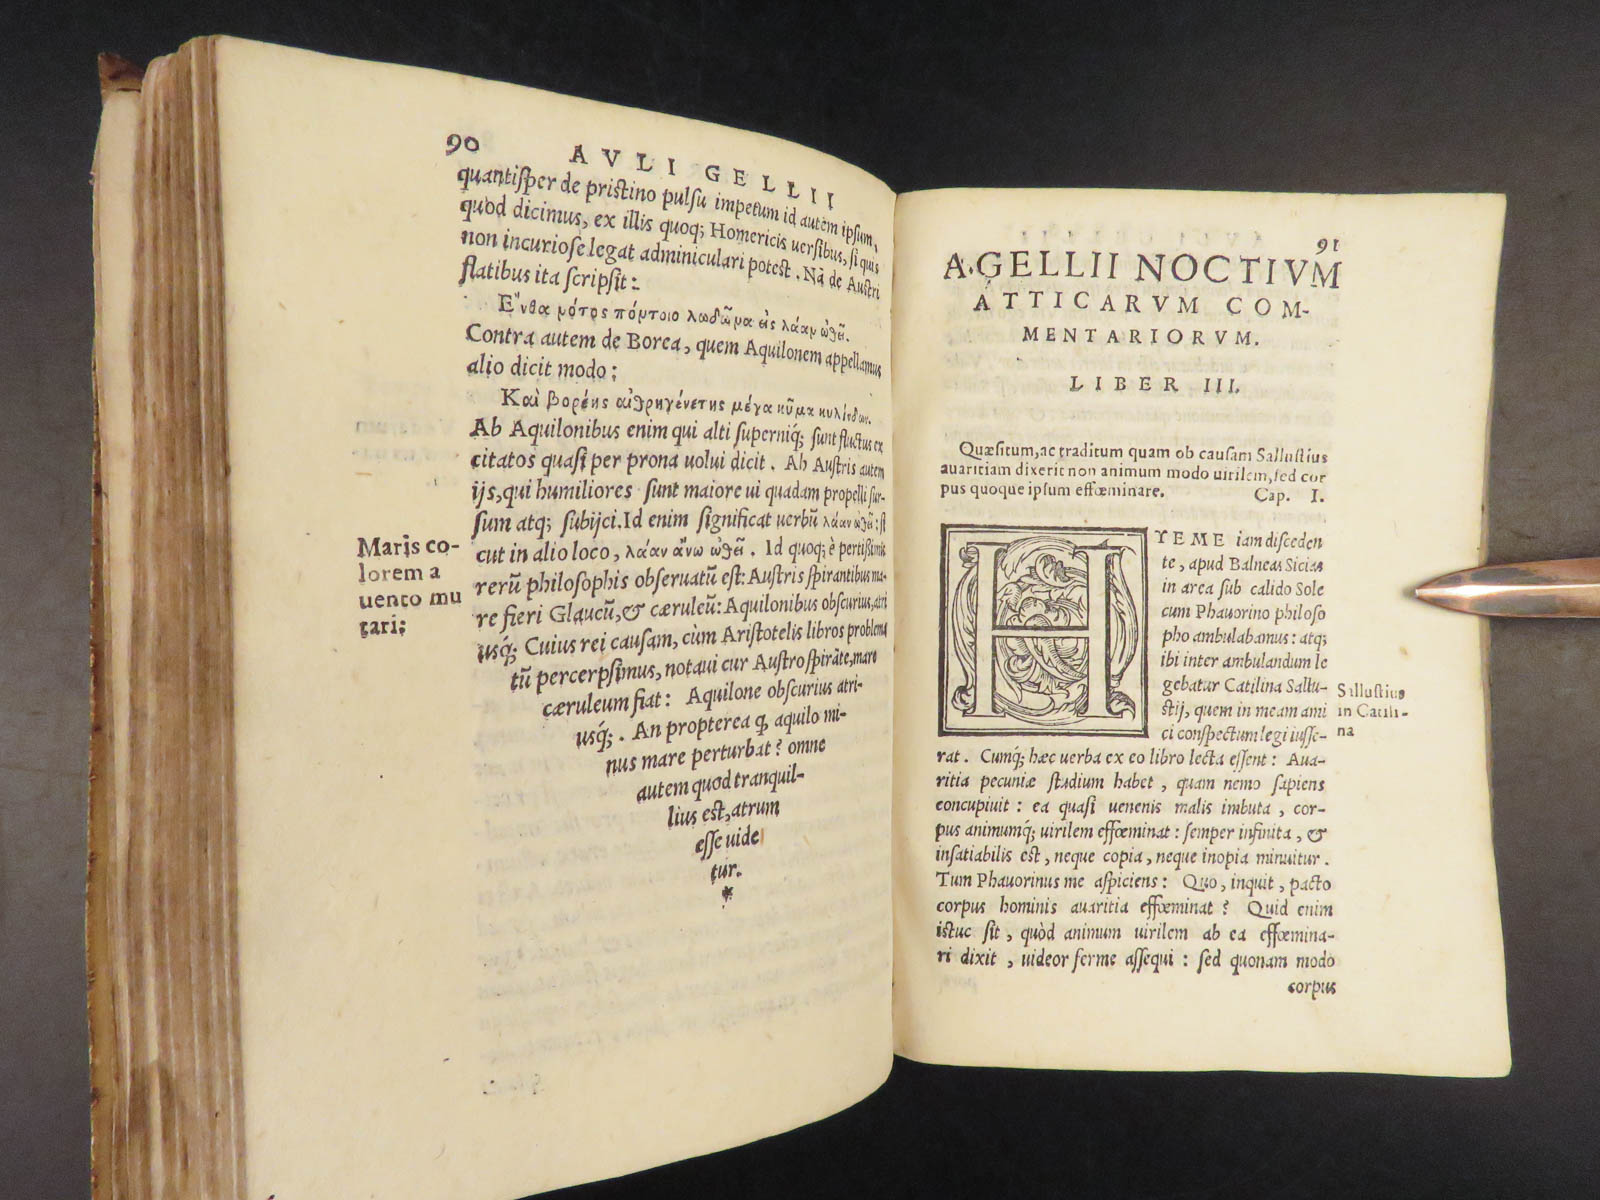 90 AVLI GELLII
quantiſper de priſtino pulſu impetum id autem ipſum,
quod dicimus, ex illis quoq; Homericis uerſibus, ſi quis
non incurioſe legat adminiculari poteſt. Nā de Auſtri
flatibus ita ſcripſit:
Ἔνθα νότος
Contra autem de Borea, quem Aquilonem appellamus
alio dicit modo:
Καὶ βορέης αἰθρηγένετης μέγα κῦμα κυλίνδων.
Ab Aquilonibus enim qui alti ſuperniq; ſunt fluctus ex
citatos quaſi per prona uolui dicit. Ab Auſtris autem
ijs, qui humiliores ſunt maiore ui quadam propelli ſur-
ſum atq; ſubijci. Id enim ſignificat uerbū λάαν ὠθεῖ: ſi
cut in alio loco, λάαν ἄνω ὠθεῖ. Id quoq; è
rerū philoſophis obſeruatū eſt: Auſtris ſpirantibus ma-
re fieri Glaucū, & cæruleū: Aquilonibus obſcurius, atri
usq́;. Cuius rei cauſam, cùm Ariſtotelis libros problema
tū percerpſimus, notaui cur Auſtro ſpirāte, mare
cæruleum fiat: Aquilone obſcurius atri-
usq́;. An propterea ꝙ aquilo mi-
nus mare perturbat? omne
autem quod tranquil-
lius eſt, atrum
eſſe uide
tur.
*
Maris co-
lorem a
uento mu
tari:
91
A. GELLII NOCTIVM
ATTICARVM COM-
MENTARIORVM.
LIBER III.
Quæſitum, ac traditum quam ob cauſam Salluſtius
auaritiam dixerit non animum modo uirilem, ſed cor
pus quoque ipſum effœminare. Cap. I.
HYEME iam diſceden
te, apud Balneas Sicias
in area ſub calido Sole
cum Phauorino philoſo
pho ambulabamus: atq;
ibi inter ambulandum le
gebatur Catilina Sallu-
ſtij, quem in meam ami
ci conſpectum legi iuſſe-
rat. Cumq́; hæc uerba ex eo libro lecta eſſent: Aua-
ritia pecuniæ ſtudium habet, quam nemo ſapiens
concupiuit: ea quaſi uenenis malis imbuta, cor-
pus animumq́; uirilem effœminat: ſemper infinita, &
inſatiabilis eſt, neque copia, neque inopia minuitur.
Tum Phauorinus me aſpiciens: Quo, inquit, pacto
corpus hominis auaritia effœminat? Quid enim
iſtuc ſit, quòd animum uirilem ab ea effœmina-
ri dixit, uideor ferme aſſequi: ſed quonam modo
corpus
Salluſtius
in Catili-
na